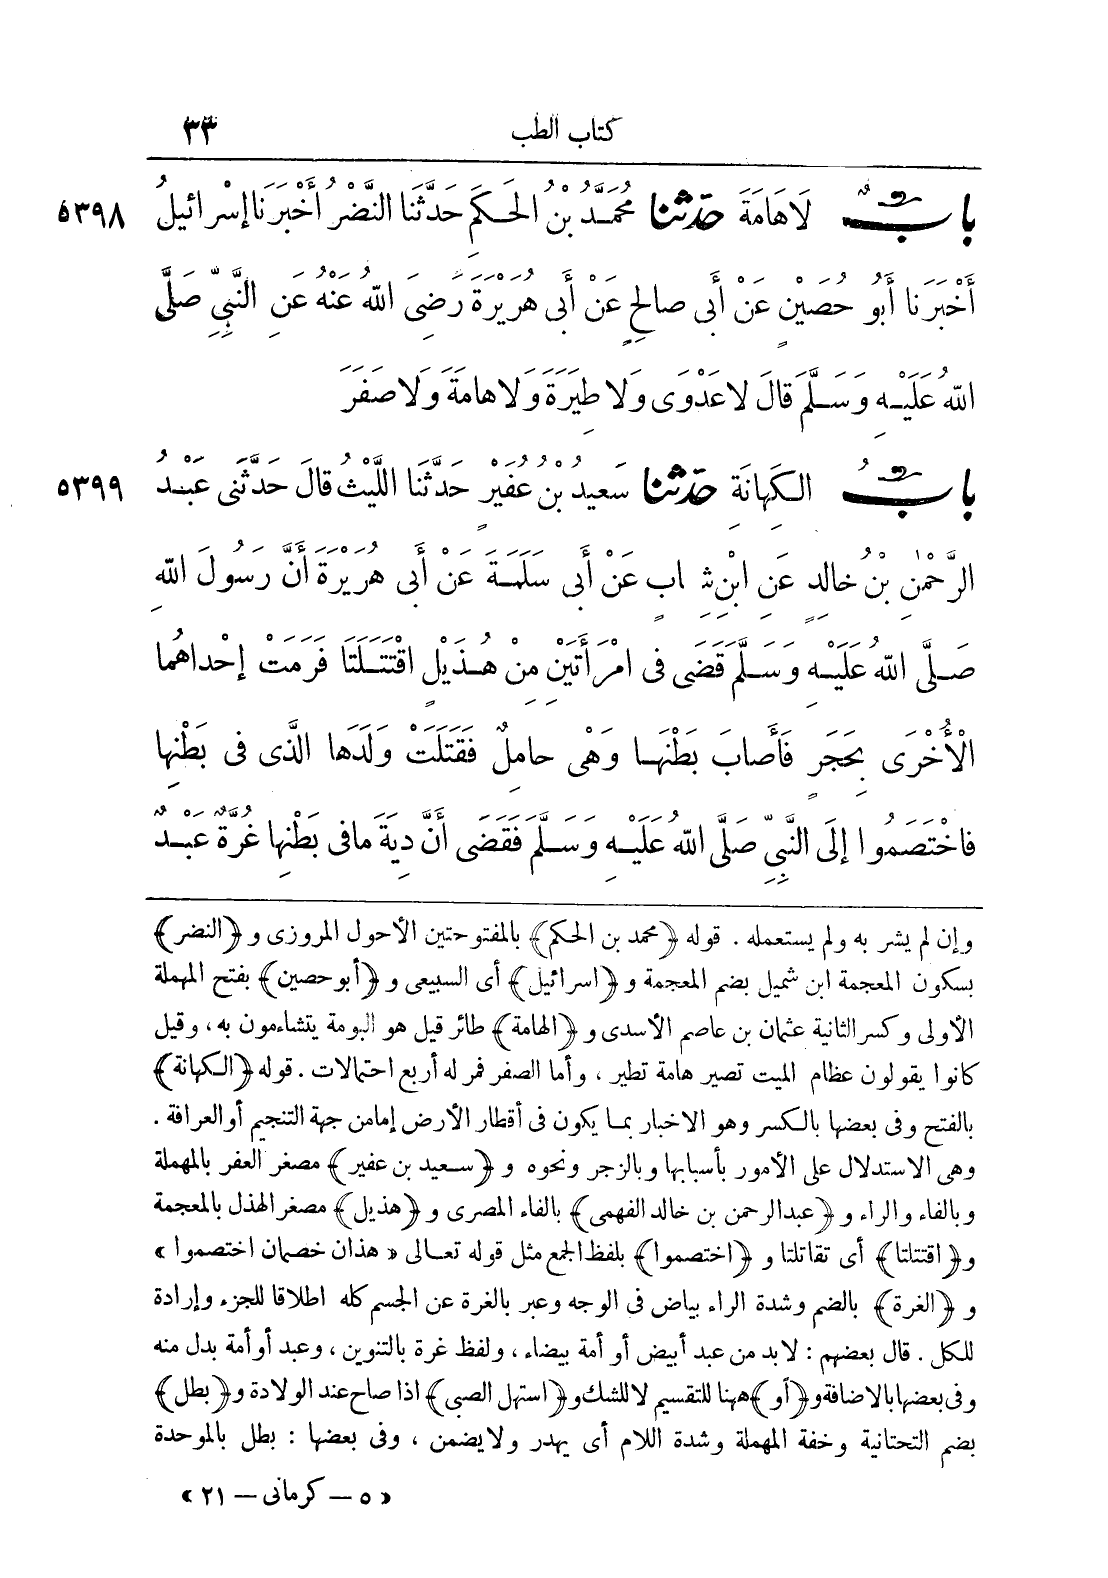 كتاب الطب ٣٣
بابٌ لَا هَامَةَ حدثنا مُحَمَّدُ بْنُ الْحَكَمِ حَدَّثَنَا النَّضْرُ أَخْبَرَنَا إِسْرَائِيلُ ٥٣٩٨
أَخْبَرَنَا أَبُو حُصَيْنٍ عَنْ أَبِى صَالِحٍ عَنْ أَبِى هُرَيْرَةَ رَضِىَ اللهُ عَنْهُ عَنِ النَّبِىِّ صَلَّى
اللهُ عَلَيْهِ وَسَلَّمَ قَالَ لَا عَدْوَى وَلَا طِيَرَةَ وَلَا هَامَةَ وَلَا صَفَرَ
بابُ الْكِهَانَةِ حدثنا سَعِيدُ بْنُ عُفَيْرٍ حَدَّثَنَا اللَّيْثُ قَالَ حَدَّثَنِى عَبْدُ ٥٣٩٩
الرَّحْمٰنِ بْنُ خَالِدٍ عَنِ ابْنِ شِهَابٍ عَنْ أَبِى سَلَمَةَ عَنْ أَبِى هُرَيْرَةَ أَنَّ رَسُولَ اللهِ
صَلَّى اللهُ عَلَيْهِ وَسَلَّمَ قَضَى فِى امْرَأَتَيْنِ مِنْ هُذَيْلٍ اقْتَتَلَتَا فَرَمَتْ إِحْدَاهُمَا
الْأُخْرَى بِحَجَرٍ فَأَصَابَ بَطْنَهَا وَهْىَ حَامِلٌ فَقَتَلَتْ وَلَدَهَا الَّذِى فِى بَطْنِهَا
فَاخْتَصَمُوا إِلَى النَّبِىِّ صَلَّى اللهُ عَلَيْهِ وَسَلَّمَ فَقَضَى أَنَّ دِيَةَ مَا فِى بَطْنِهَا غُرَّةٌ عَبْدٌ
وإن لم يشر به ولم يستعمله . قوله ﴿محمد بن الحكم﴾ بالمفتوحتين الأحول المروزى و﴿النضر﴾
بسكون المعجمة ابن شميل بضم المعجمة و﴿اسرائيل﴾ أى السبيعى و﴿أبو حصين﴾ بفتح المهملة
الأولى وكسر الثانية عثمان بن عاصم الأسدى و﴿الهامة﴾ طائر قيل هو البومة يتشاءمون به ، وقيل
كانوا يقولون عظام الميت تصير هامة تطير ، وأما الصفر فمر له أربع احتمالات . قوله ﴿الكهانة﴾
بالفتح وفى بعضها بالكسر وهو الاخبار بما يكون فى أقطار الأرض إما من جهة التنجيم أو العرافة .
وهى الاستدلال على الأمور بأسبابها وبالزجر ونحوه و﴿سعيد بن عفير﴾ مصغر العفر بالمهملة
وبالفاء والراء و﴿عبد الرحمن بن خالد الفهمى﴾ بالفاء المصرى و﴿هذيل﴾ مصغر الهذل بالمعجمة
و﴿اقتتلتا﴾ أى تقاتلتا و﴿اختصموا﴾ بلفظ الجمع مثل قوله تعالى « هذان خصمان اختصموا »
و﴿الغرة﴾ بالضم وشدة الراء بياض فى الوجه وعبر بالغرة عن الجسم كله اطلاقا للجزء وإرادة
للكل . قال بعضهم : لا بد من عبد أبيض أو أمة بيضاء ، ولفظ غرة بالتنوين ، وعبد أو أمة بدل منه
وفى بعضها بالاضافة و﴿أو﴾ ههنا للتقسيم لا للشك و﴿استهل الصبى﴾ اذا صاح عند الولادة و﴿بطل﴾
بضم التحتانية وخفة المهملة وشدة اللام أى يهدر ولا يضمن ، وفى بعضها : بطل بالموحدة
« ٥ – كرمانى – ٢١ »